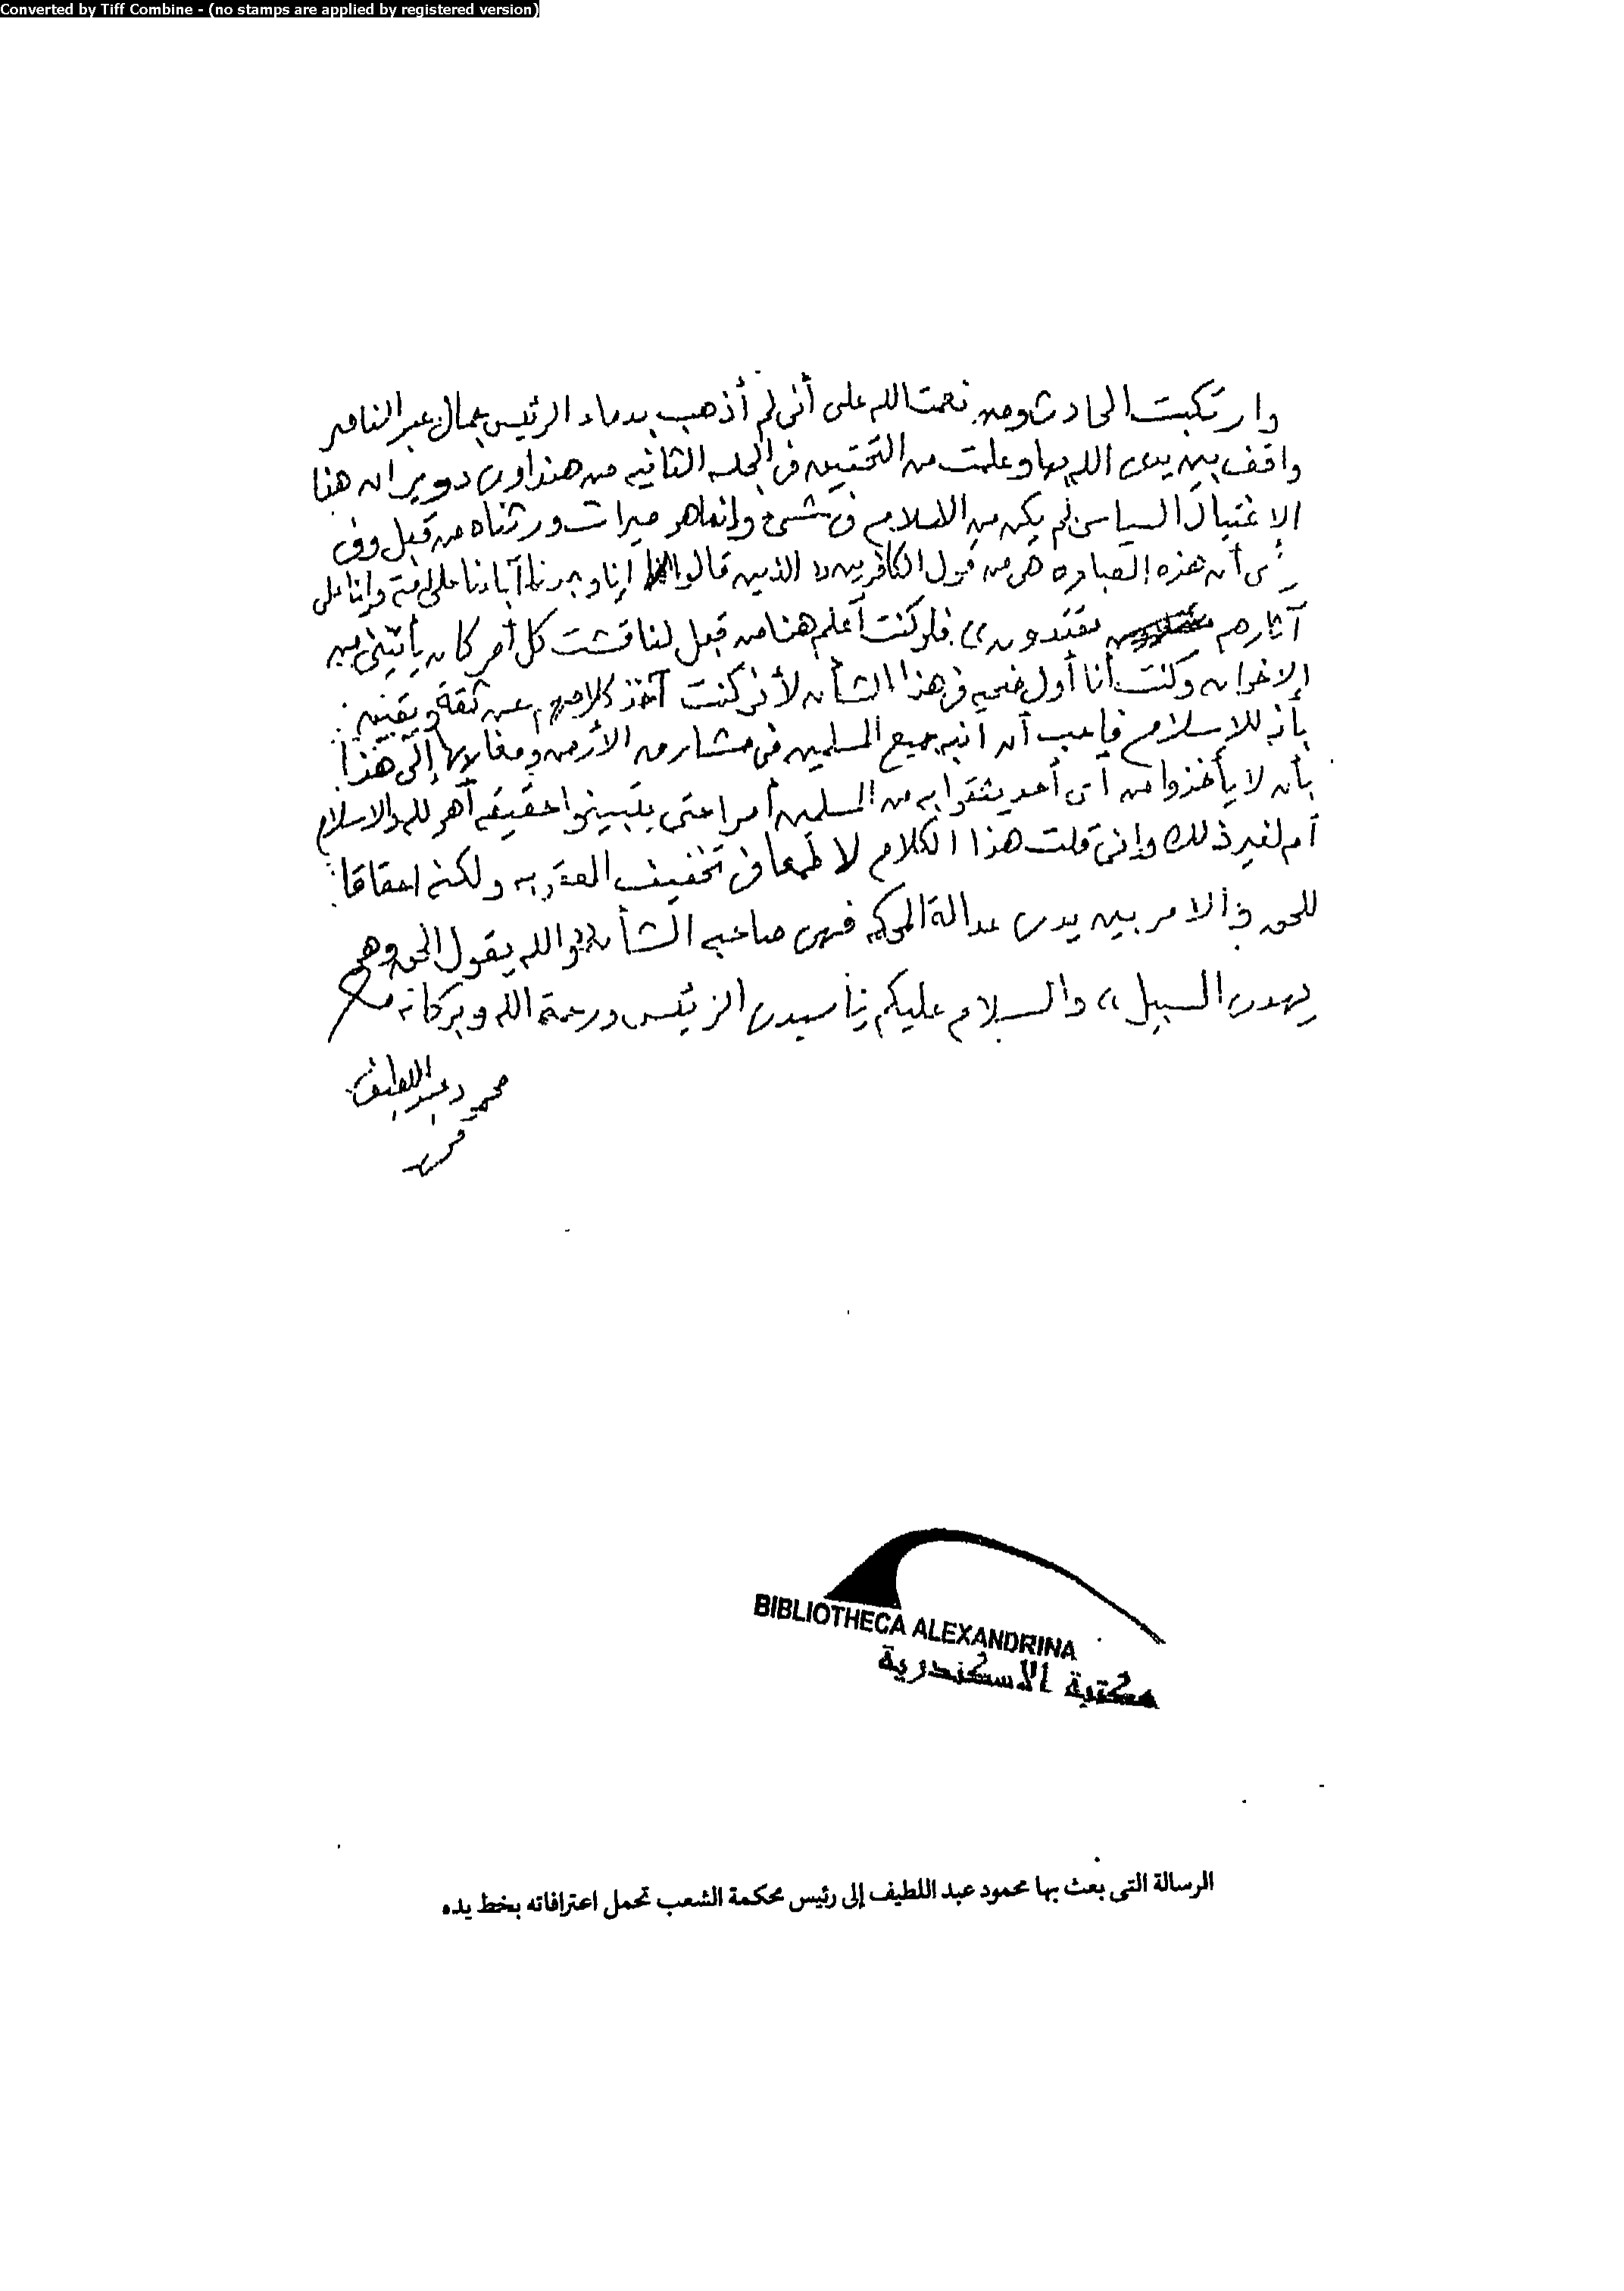 Converted by Tiff Combine - (no stamps are applied by registered version)
وارتكبت الحادث ومن نعمت الله على أنى لم أذهب بدماء الرئيس جمال عبد الناصر
واقف بين يدى الله بها وعلمت من التحقيق فى الجلسه الثانيه من هنداوى دوير ان هذا
الاغتيال السياسى لم يكن من الاسلام فى شىء وانما هو ميراث ورثناه من قبل وفى
أن هذه العباره هى من قول الكافرين « الذين قالوا انا وجدنا آباءنا على امة وإنا على
آثارهم مقتدون » فلو كنت أعلم هذا من قبل لناقشت كل أمر كان يأتينى من
الاخوان وكنت أنا أول ضحيه فى هذا الشأن لأنى كنت آخذ كلامهم عن ثقة ويقين
بأنه للاسلام فأحب أن انبه جميع المسلمين فى مشارق الأرض ومغاربها إلى هذا
بأن لا يأخذوا من أى أحد يثقوا به من المسلمين أمرا حتى يتبينوا حقيقه أهو لله والاسلام
أم لغير ذلك وإنى قلت هذا الكلام لا طمعا فى تخفيف العقوبه ولكنه احقاقا
للحق فالامر بين يدى عدالة المحكمه فهى صاحبه الشأن « والله يقول الحق وهو
يهدى السبيل » والسلام عليكم يا سيدى الرئيس ورحمة الله وبركاته
محمود عبد اللطيف
BIBLIOTHECA ALEXANDRINA
مكتبة الاسكندرية
الرسالة التى بعث بها محمود عبد اللطيف إلى رئيس محكمة الشعب تحمل اعترافاته بخط يده